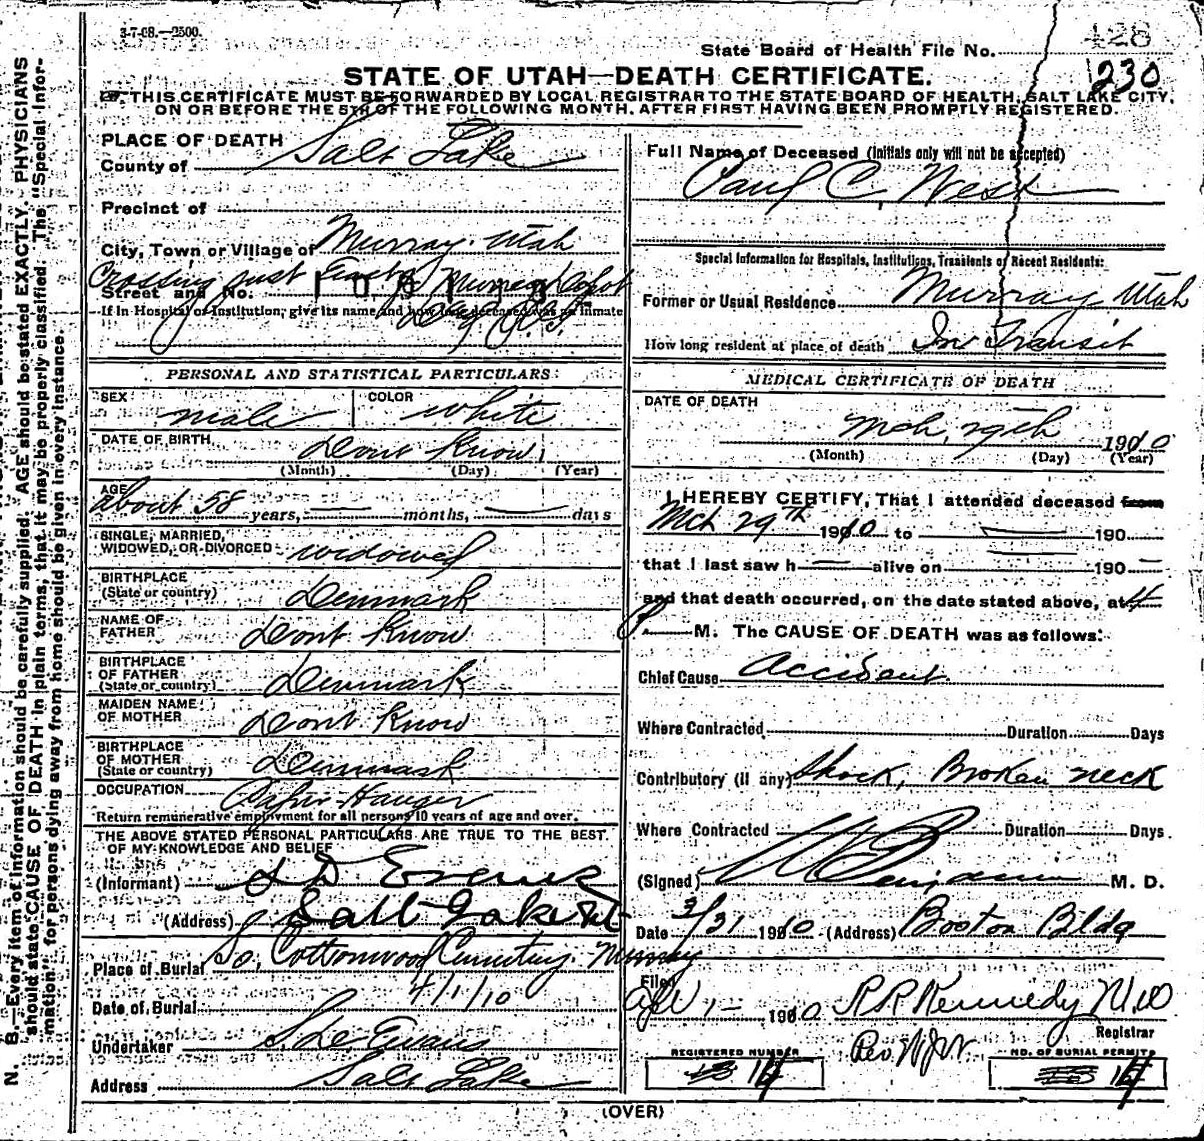 3-7-08.—2500.
428
State Board of Health File No.
230
STATE OF UTAH—DEATH CERTIFICATE.
THIS CERTIFICATE MUST BE FORWARDED BY LOCAL REGISTRAR TO THE STATE BOARD OF HEALTH, SALT LAKE CITY,
ON OR BEFORE THE 5TH OF THE FOLLOWING MONTH, AFTER FIRST HAVING BEEN PROMPTLY REGISTERED.
PLACE OF DEATH
County of Salt Lake
Precinct of
City, Town or Village of Murray Utah
Crossing just East of Murray Depot
Street and No.
If in Hospital or Institution, give its name and how long deceased was an inmate
PERSONAL AND STATISTICAL PARTICULARS:
SEX male COLOR white
DATE OF BIRTH Dont Know
(Month) (Day) (Year)
AGE
about 58 years, — months, — days
SINGLE, MARRIED,
WIDOWED, OR DIVORCED widowed
BIRTHPLACE
(State or country) Denmark
NAME OF
FATHER Dont Know
BIRTHPLACE
OF FATHER
(State or country) Denmark
MAIDEN NAME
OF MOTHER Dont Know
BIRTHPLACE
OF MOTHER
(State or country) Denmark
OCCUPATION Paper Hanger
Return remunerative employment for all persons 10 years of age and over.
THE ABOVE STATED PERSONAL PARTICULARS ARE TRUE TO THE BEST
OF MY KNOWLEDGE AND BELIEF
(Informant) Evans
(Address) Salt Lake
Place of Burial So. Cottonwood Cemetery. Murray
Date of Burial 4/1/10
Undertaker Evans
Address Salt Lake
Full Name of Deceased (Initials only will not be accepted)
Paul C. West
Special Information for Hospitals, Institutions, Transients or Recent Residents:
Former or Usual Residence Murray Utah
How long resident at place of death In Transit
MEDICAL CERTIFICATE OF DEATH
DATE OF DEATH
Mch, 29th 1910
(Month) (Day) (Year)
I HEREBY CERTIFY, That I attended deceased from
Mch 29th 1910 to — 190
that I last saw h — alive on — 190 —
and that death occurred, on the date stated above, at 4
P. M. The CAUSE OF DEATH was as follows:
Chief Cause accident
Where Contracted Duration Days
Contributory (if any) Shock, Broken neck
Where Contracted Duration Days.
(Signed) Benjamin M. D.
Date 3/31 1910 (Address) Boston Bldg
Filed
Apl 1— 1910 R R Kennedy MD
Registrar
REGISTERED NUMBER
14
NO. OF BURIAL PERMIT
14
(OVER)
N. B. Every item of information should be carefully supplied. AGE should be stated EXACTLY. PHYSICIANS
should state CAUSE OF DEATH in plain terms, that it may be properly classified. The "Special Infor-
mation" for persons dying away from home should be given in every instance.